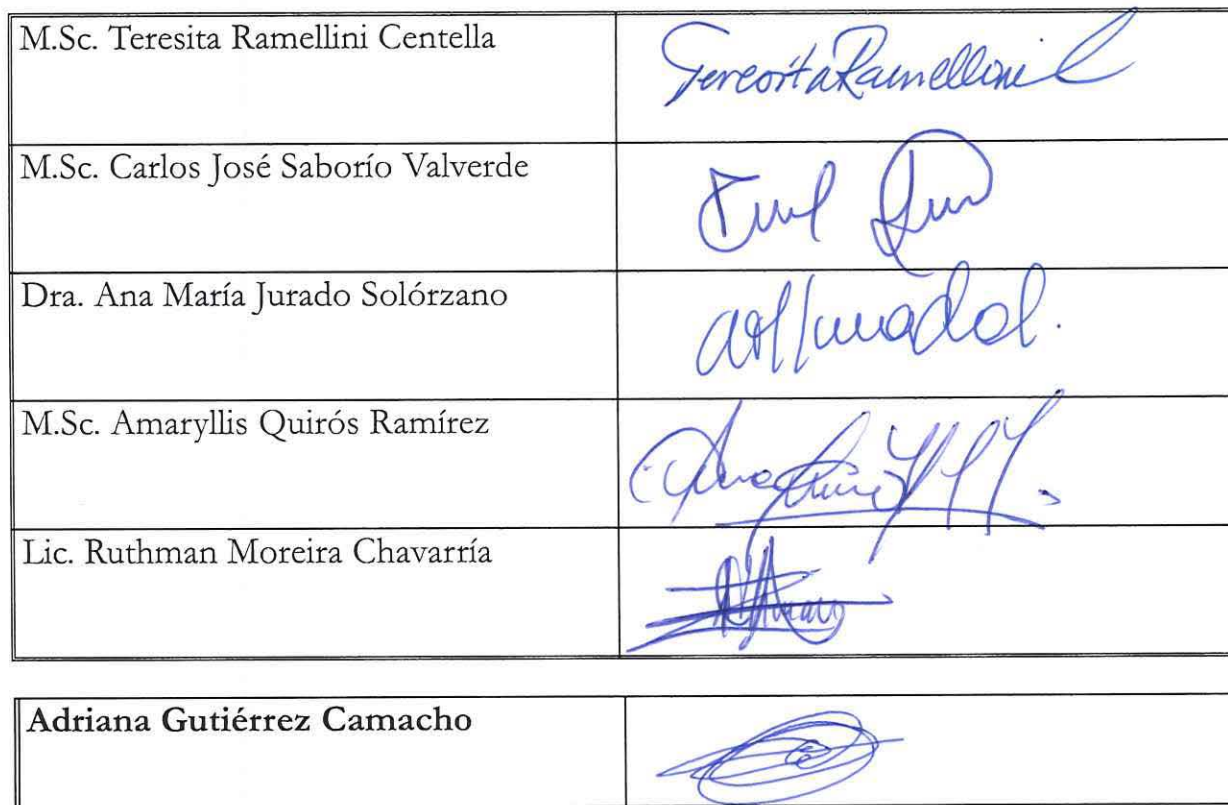 M.Sc. Teresita Ramellini Centella
Teresita Ramellini C
M.Sc. Carlos José Saborío Valverde
Dra. Ana María Jurado Solórzano
M.Sc. Amaryllis Quirós Ramírez
Lic. Ruthman Moreira Chavarría
Adriana Gutiérrez Camacho